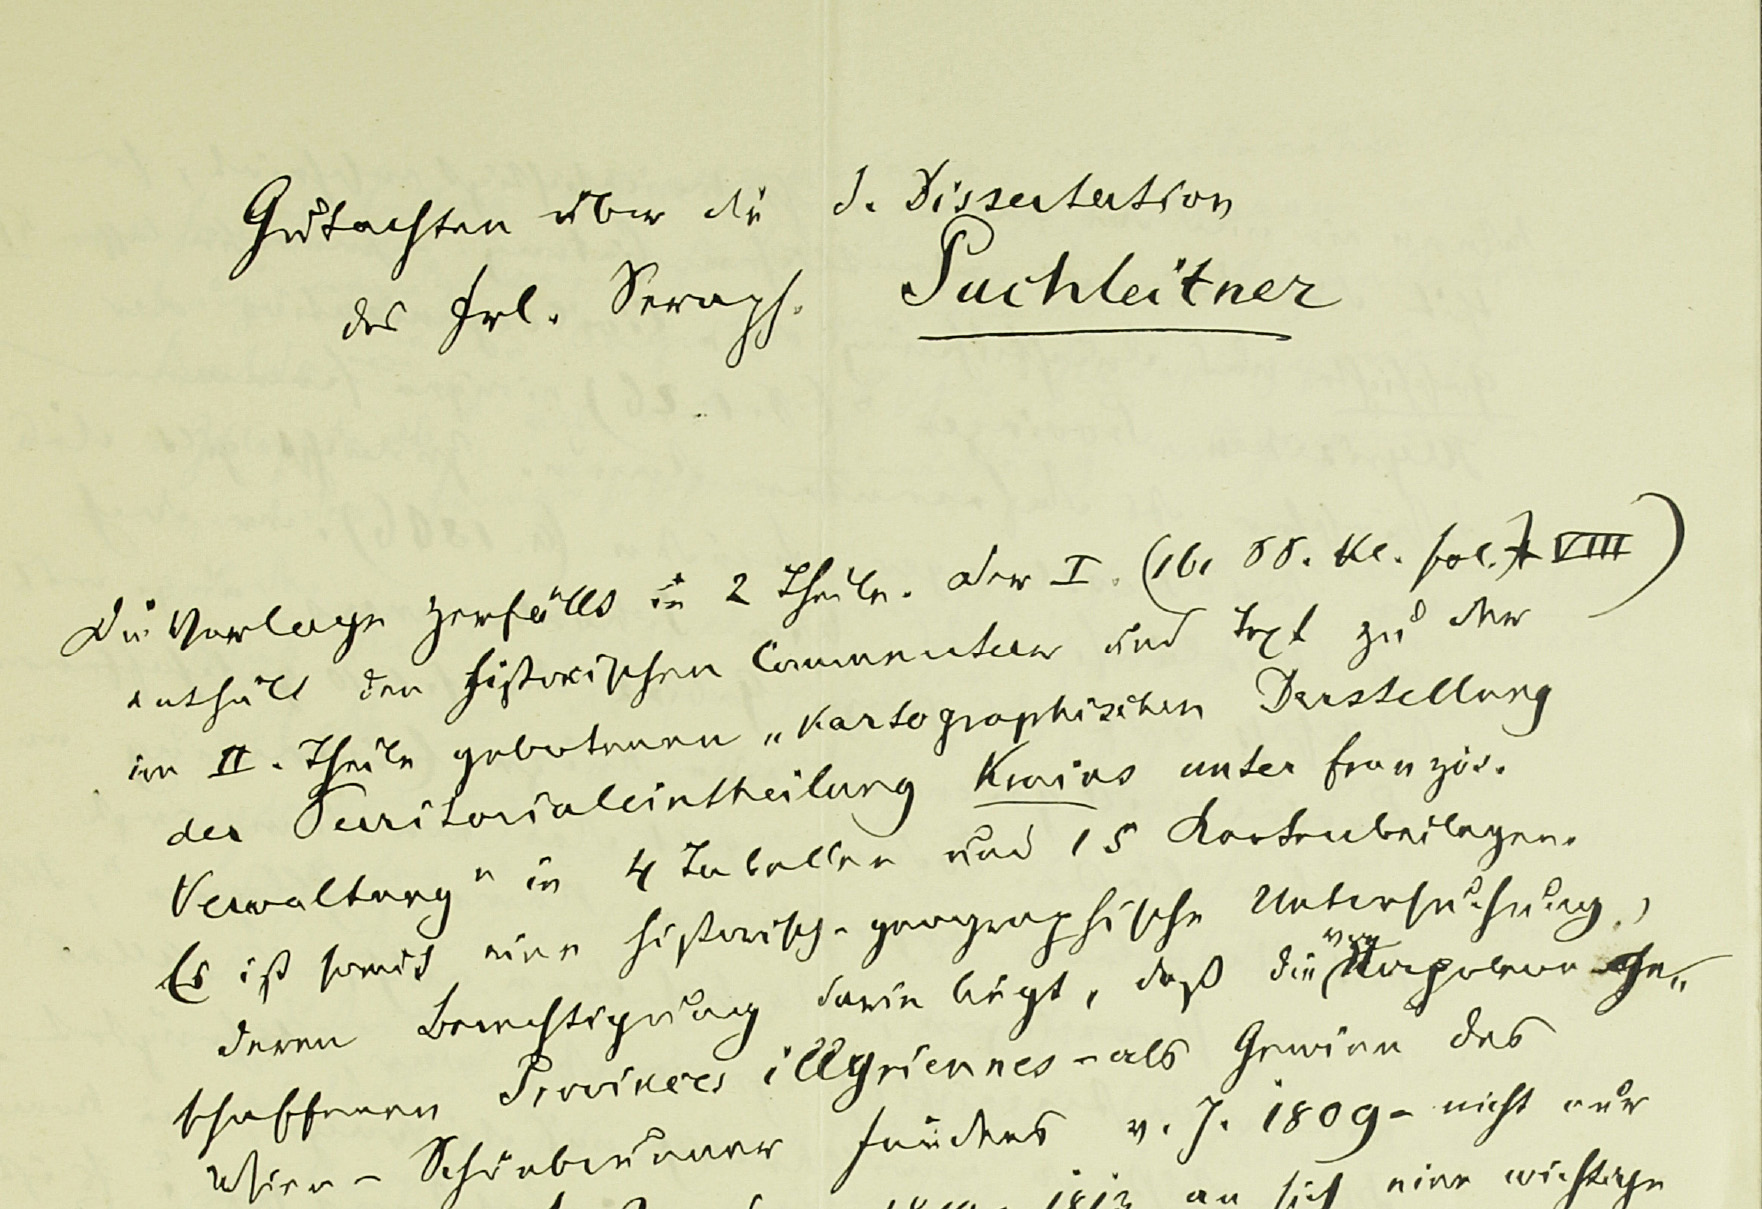 Gutachten über die d. Dissertation
des Frl. Seraph. Puchleitner
Die Vorlage zerfällt in 2 Theile. Der I. (161 SS. kl. fol. + VIII)
enthält den historischen Commentar und Text zu der
im II. Theile gebotenen „Kartographischen Darstellung
der Territorialeintheilung Krains unter französ.
Verwaltung" in 4 Tabellen und 15 Kartenbeilagen.
Es ist somit eine historisch-geographische Untersuchung,
deren Berechtigung darin liegt, daß die von Napoleon ge„
schaffenen Provinces illyriennes - als Gewinn des
Wien - Schönbrunner Friedens v. J. 1809 - nicht nur
1813 an sich eine wichtige